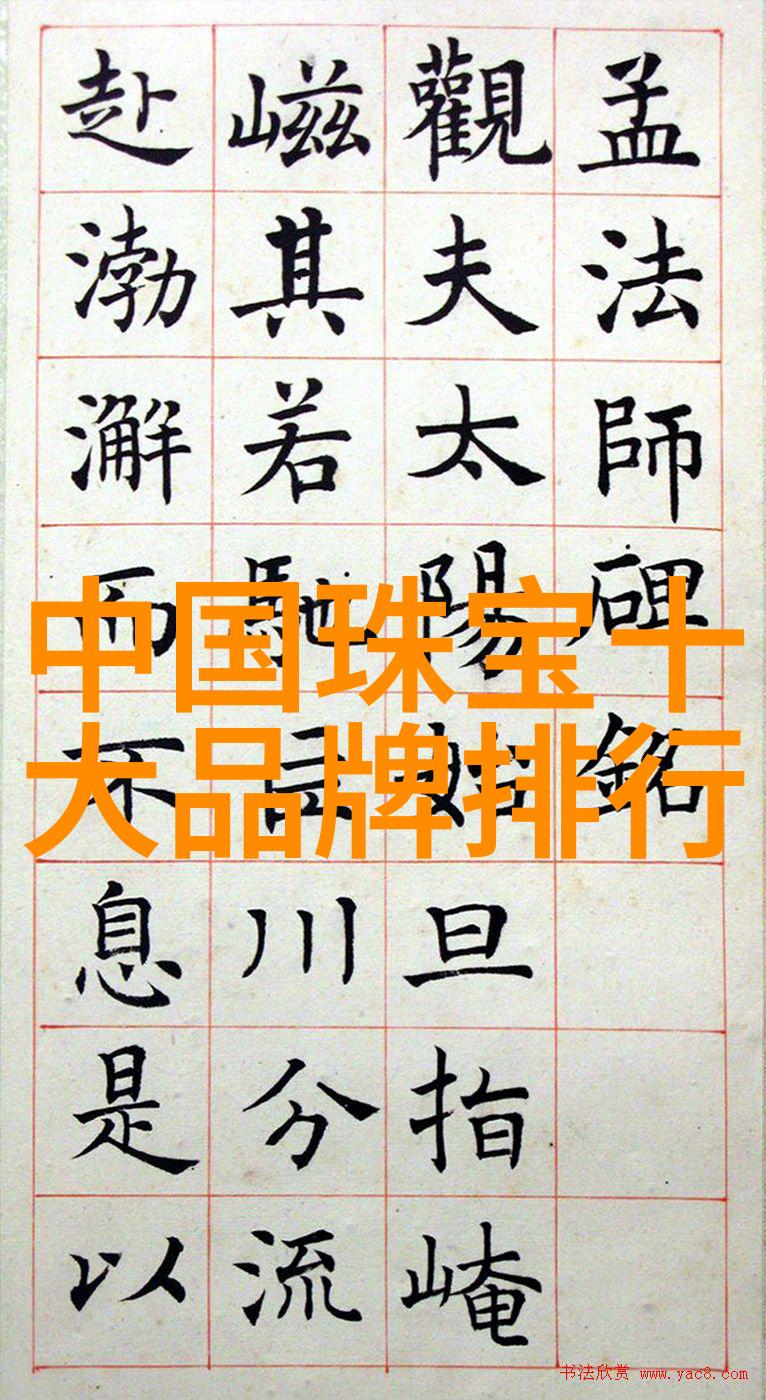 孟法師碑銘
觀夫太陽始旦指崦
嵫其若馳川分流
赴渤澥而不息是以
中国珠宝十
大品牌排行
书法欣赏 www.yac8.com